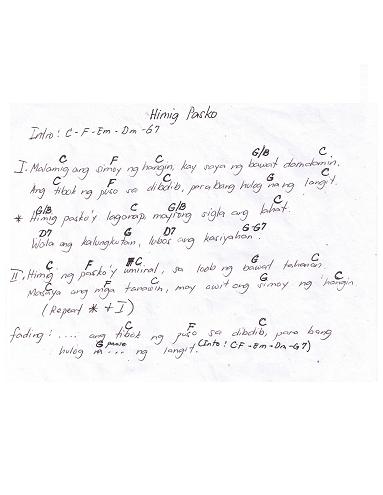 Himig Pasko
Intro: C-F-Em-Dm-G7
C F C G/B C
I. Malamig ang simoy ng hangin, kay saya ng bawat damdamin.
C F C G C
Ang tibok ng puso sa dibdib, para bang hulog na ng langit.
G/B C G/B C
* Himig pasko'y laganap, mayrong sigla ang lahat.
D7 G D7 G-G7
Wala ang kalungkutan, lubos ang kasiyahan.
C F C G C
II. Himig ng pasko'y umiiral, sa loob ng bawat tahanan.
C F C G C
Masaya ang mga tanawin, may awit ang simoy ng hangin
(Repeat * + I)
C F C
fading: .... ang tibok ng puso sa dibdib, para bang
G pause C
hulog na ... ng langit. (Into: C-F-Em-Dm-G7)